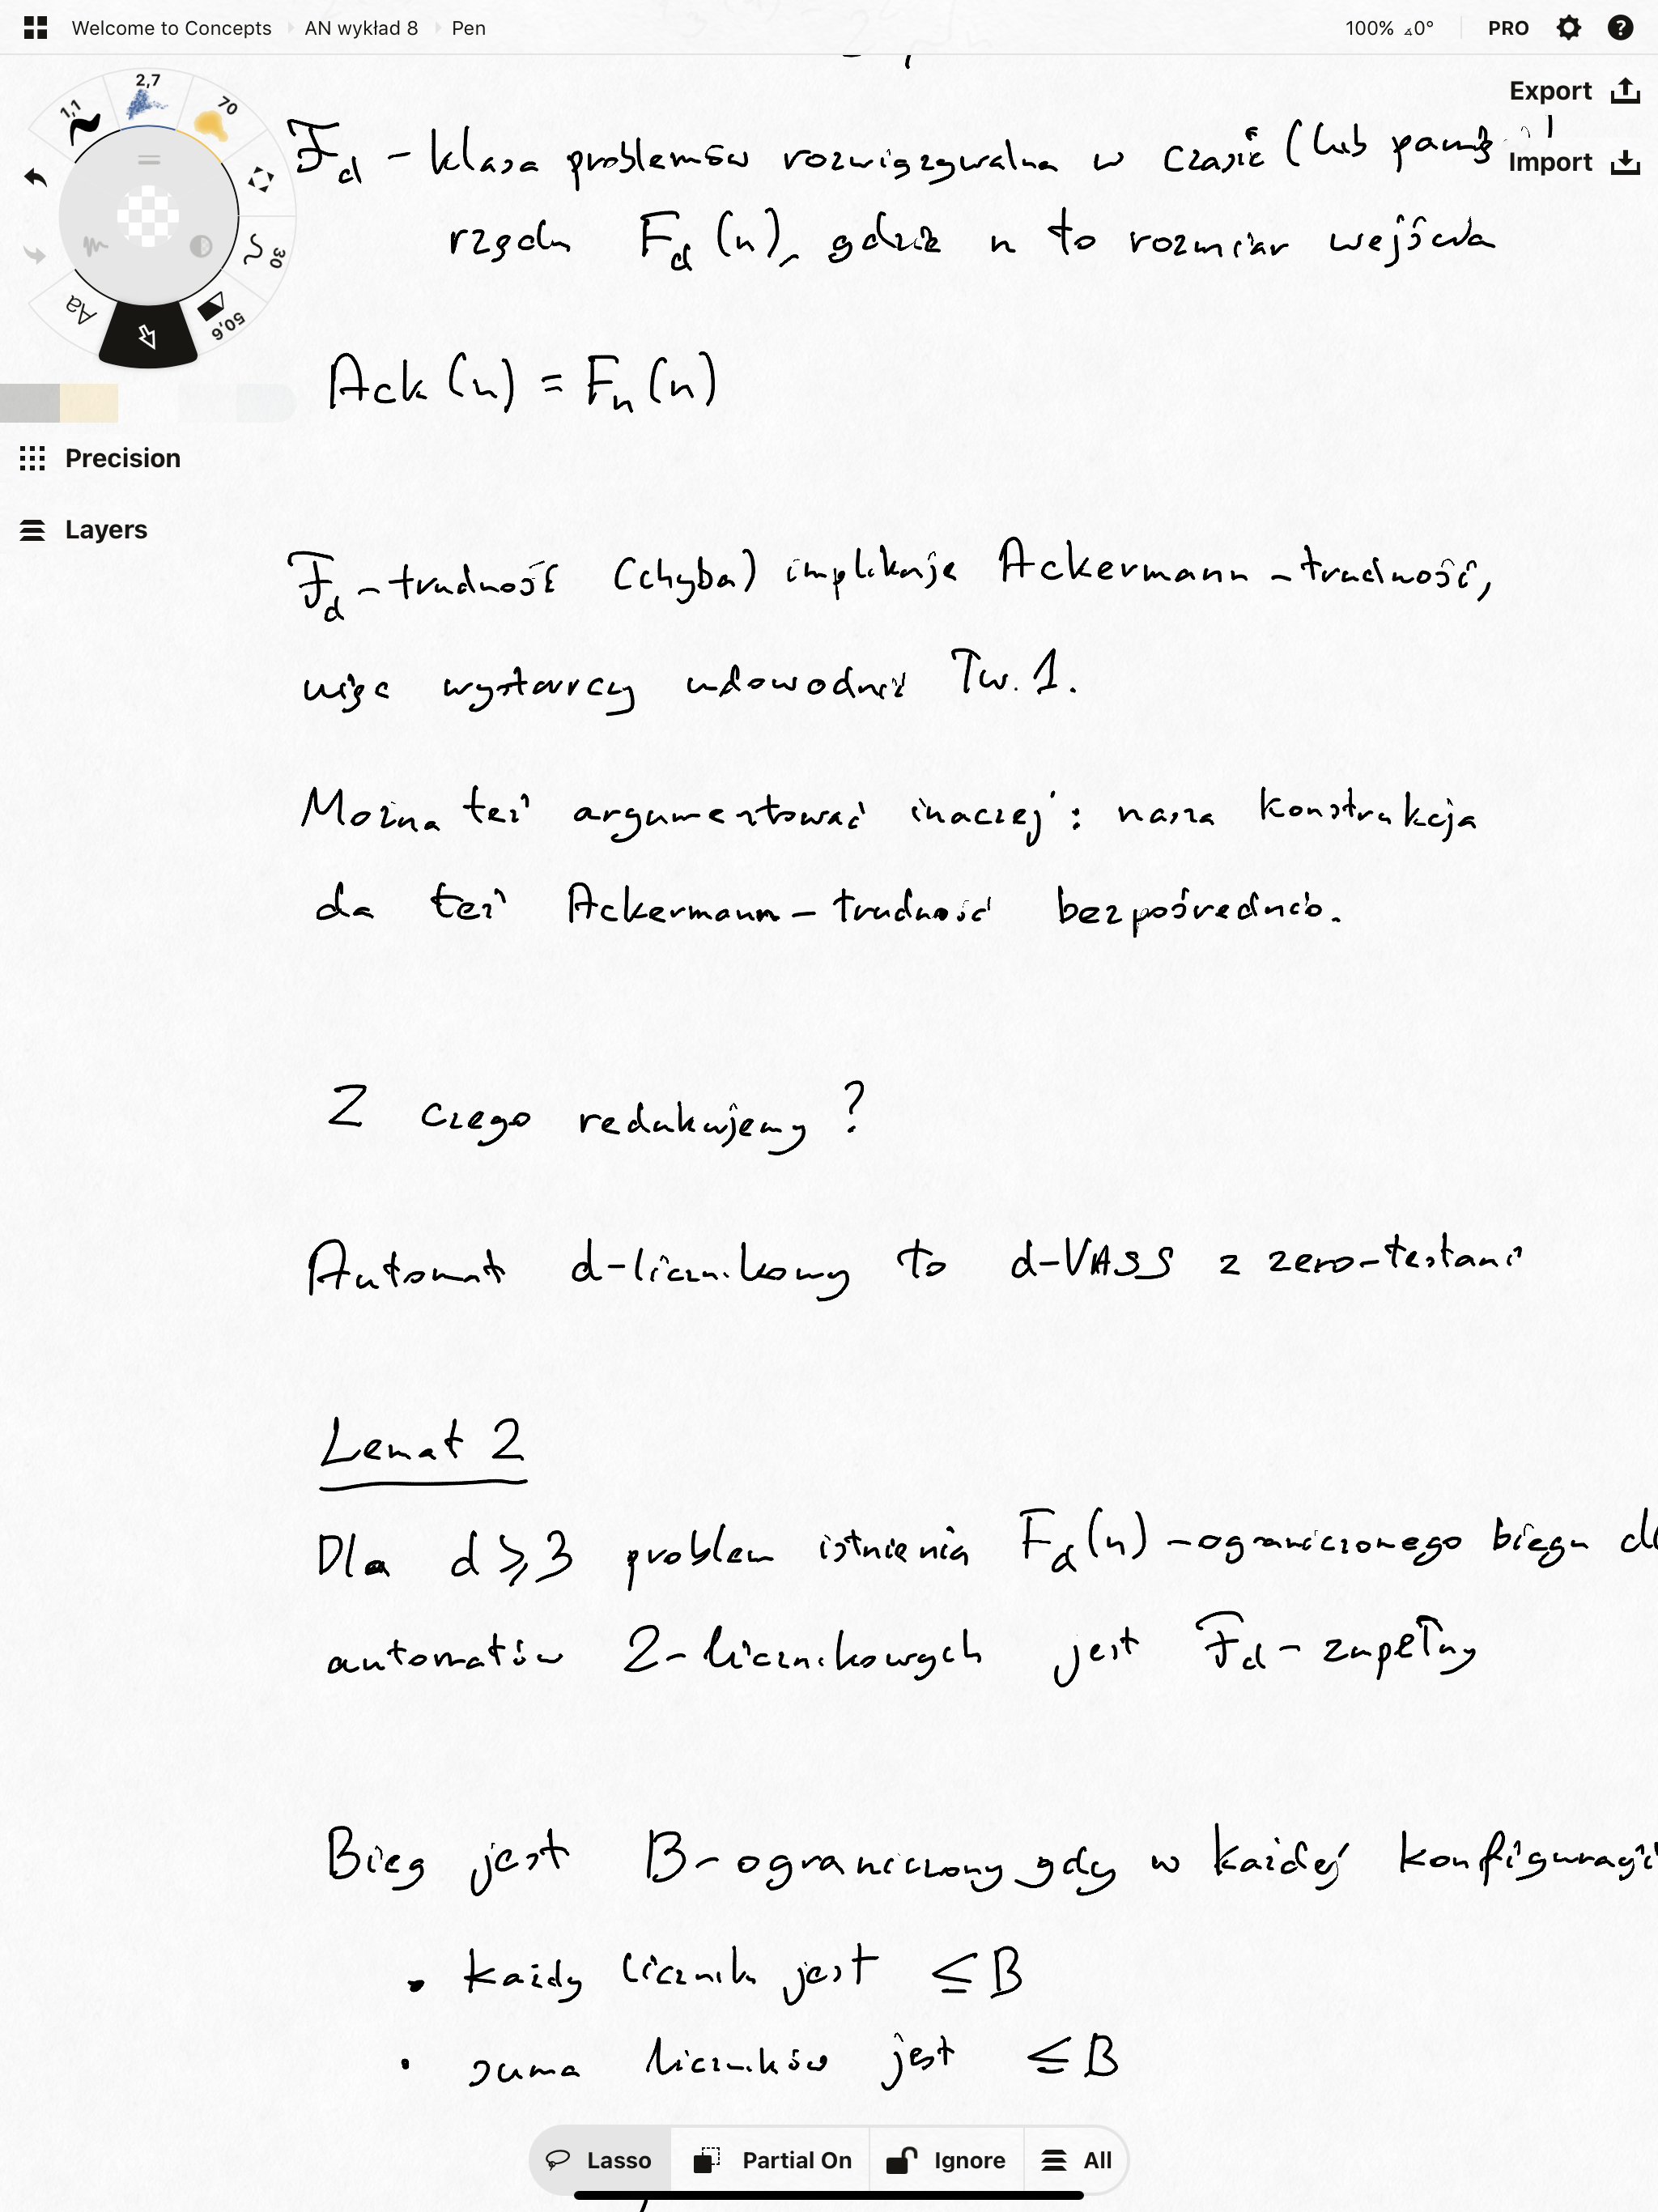 Welcome to Concepts AN wykład 8 Pen 100% 0° PRO
Export
Import
1,1 2,7 70 30 50,6 Aa
Precision
Layers
F_d – klasa problemów rozwiązywalna w czasie (lub
rzędu F_d(n), gdzie n to rozmiar wejścia
Ack(n) = F_n(n)
F_d – trudność (chyba) implikuje Ackermann – trudność,
więc wystarczy udowodnić Tw. 1.
Można też argumentować inaczej: nasza konstrukcja
da też Ackermann – trudność bezpośrednio.
Z czego redukujemy?
Automat d-licznikowy to d-VASS z zero-testami
Lemat 2
Dla d ≥ 3 problem istnienia F_d(n) – ograniczonego biegu
automatów 2-licznikowych jest F_d – zupełny
Bieg jest B – ograniczony gdy w każdej konfiguracji
• każdy licznik jest ≤ B
• suma liczników jest ≤ B
Lasso Partial On Ignore All